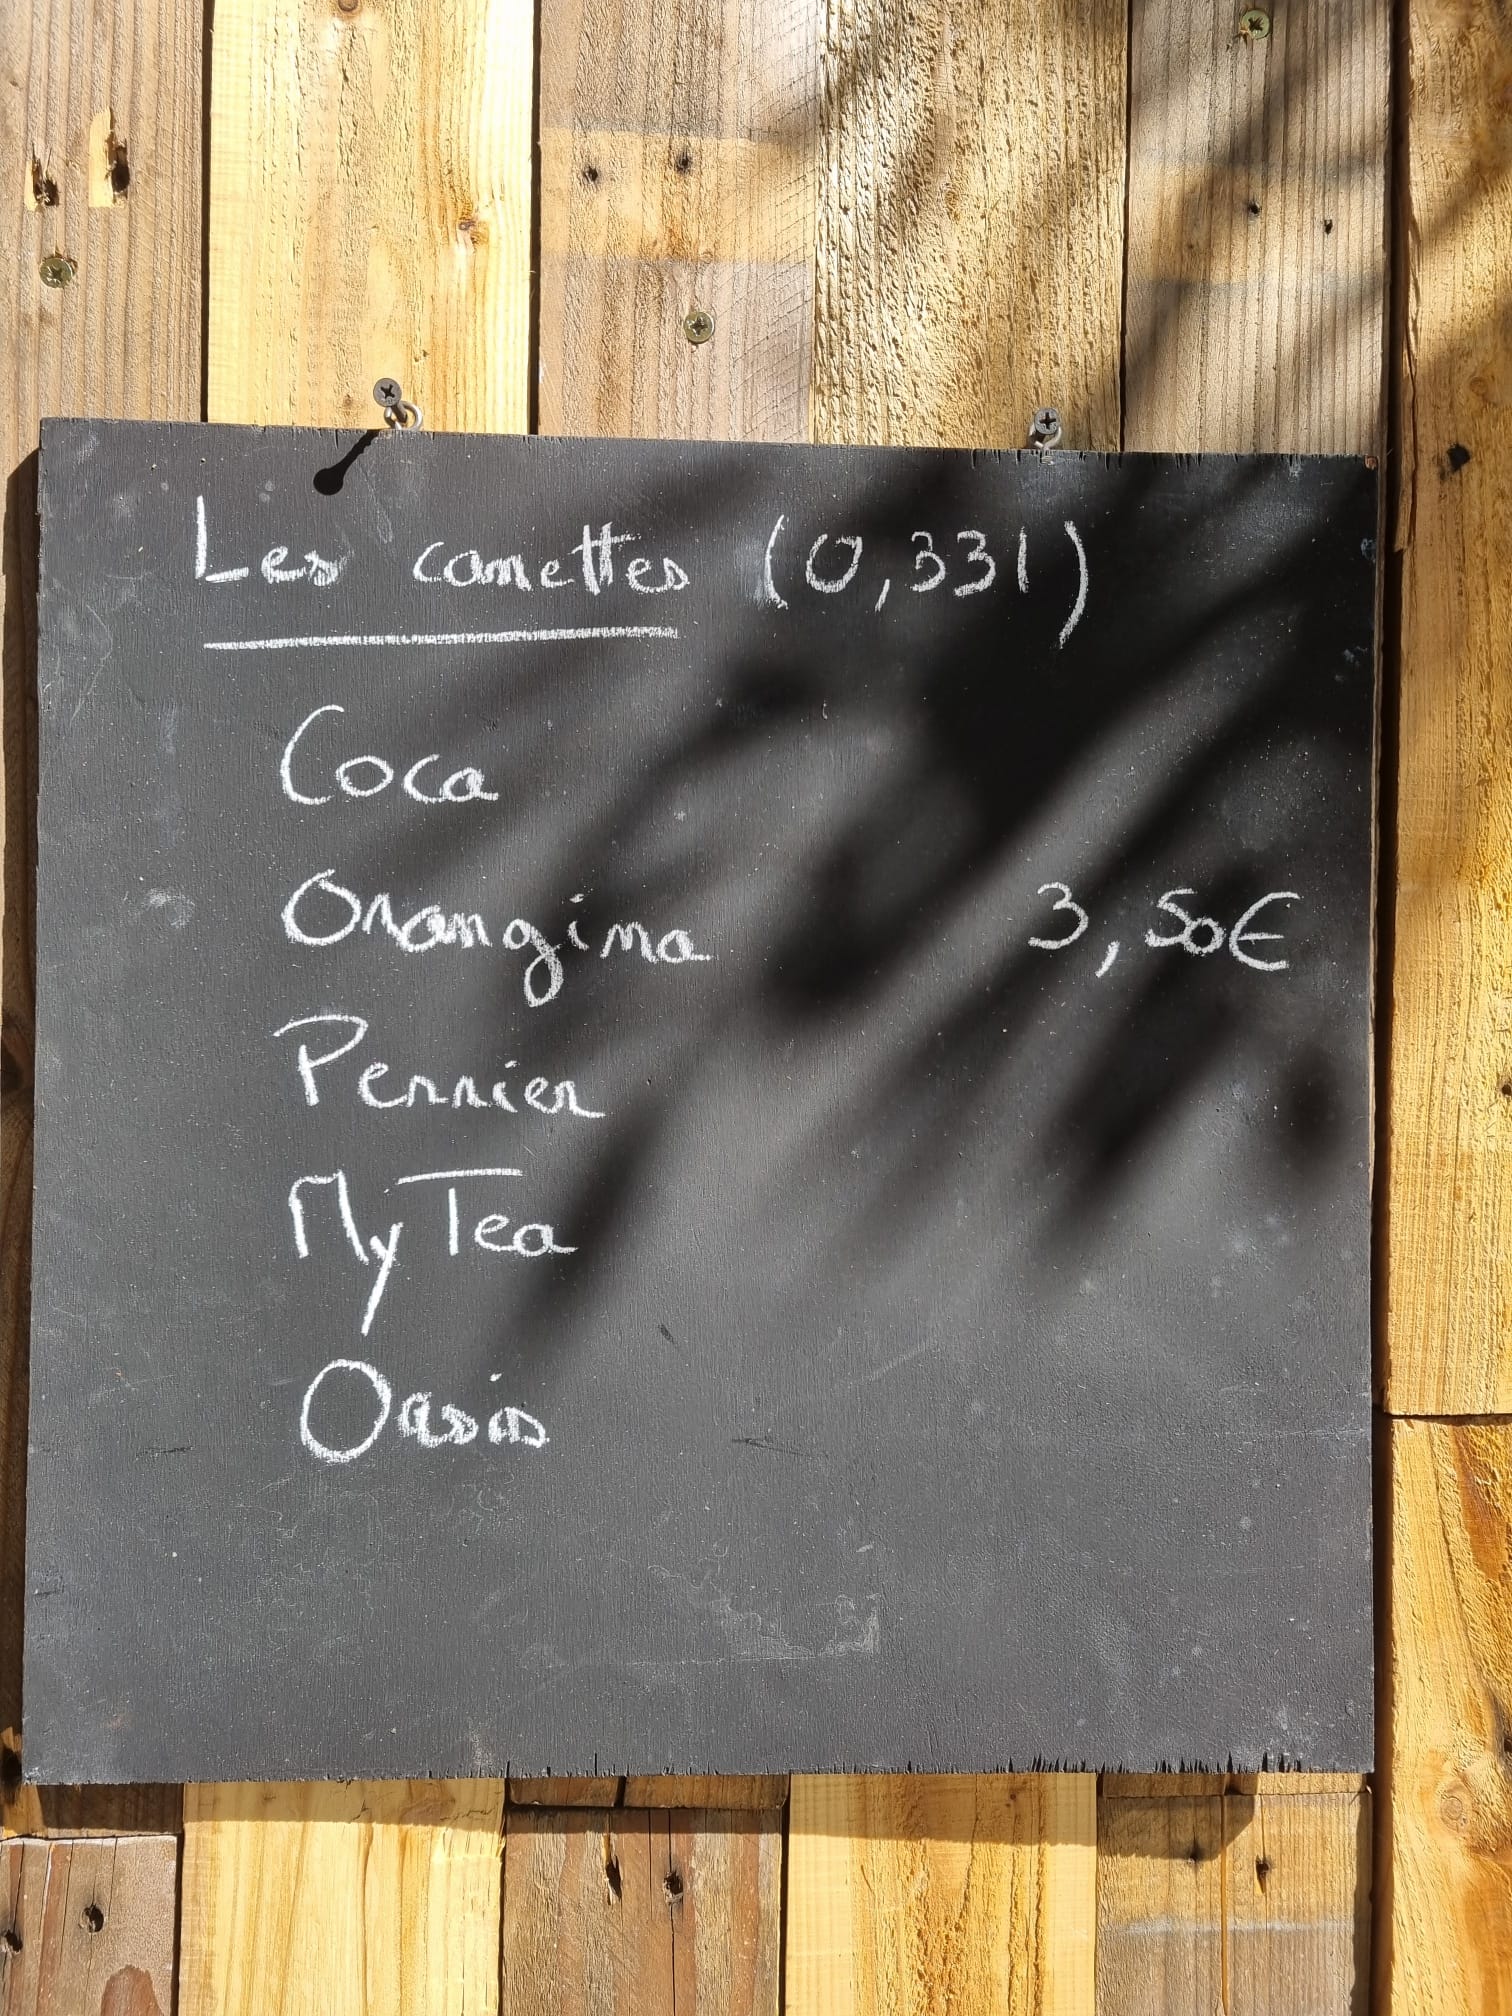 Les canettes (0,33l)
Coca
Orangina 3,50€
Perrier
My Tea
Oasis